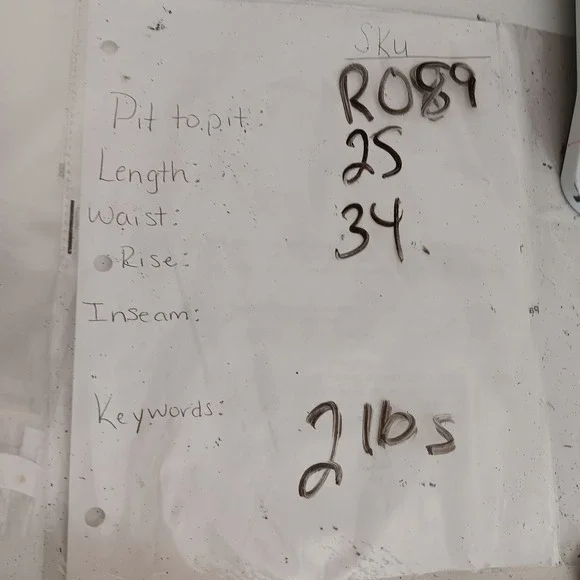 SKU
RO89
Pit to pit: 25
Length: 34
Waist:
Rise:
Inseam:
Keywords: 2 lbs